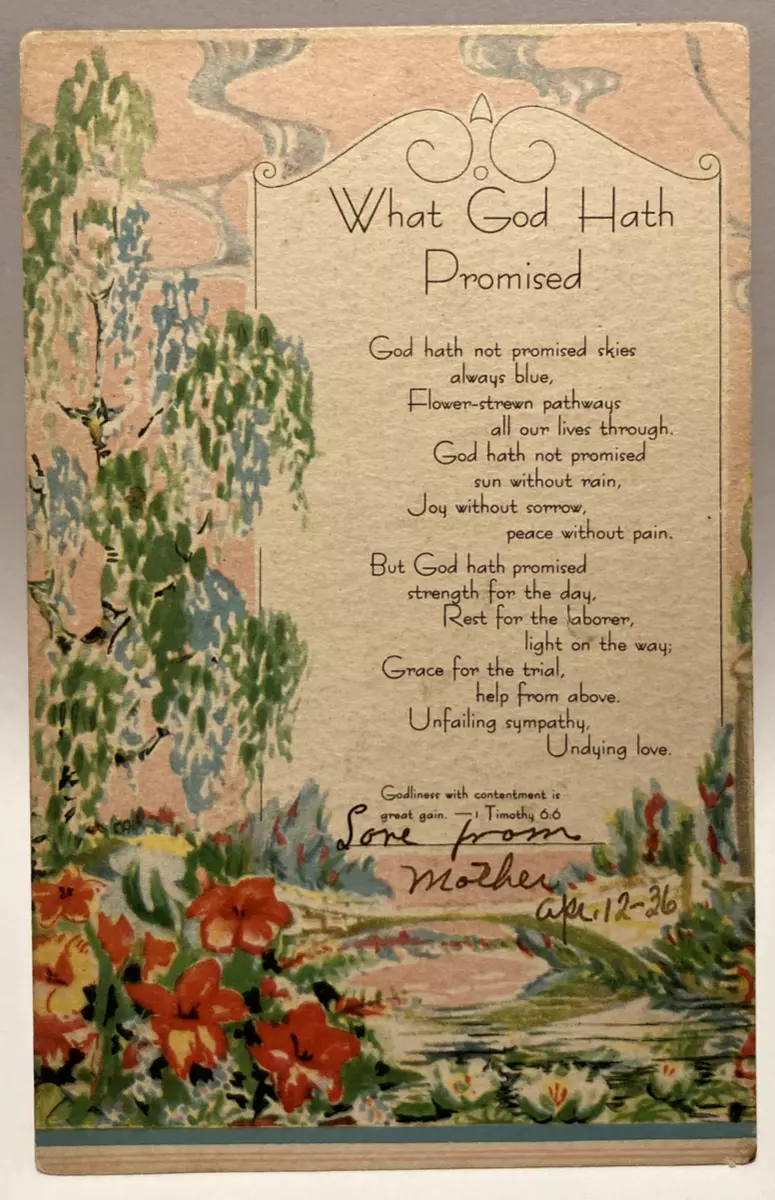 What God Hath
Promised
God hath not promised skies
always blue,
Flower-strewn pathways
all our lives through.
God hath not promised
sun without rain,
Joy without sorrow,
peace without pain.
But God hath promised
strength for the day,
Rest for the laborer,
light on the way;
Grace for the trial,
help from above.
Unfailing sympathy,
Undying love.
Godliness with contentment is
great gain. —1 Timothy 6:6
Love from
Mother
Apr. 12-36